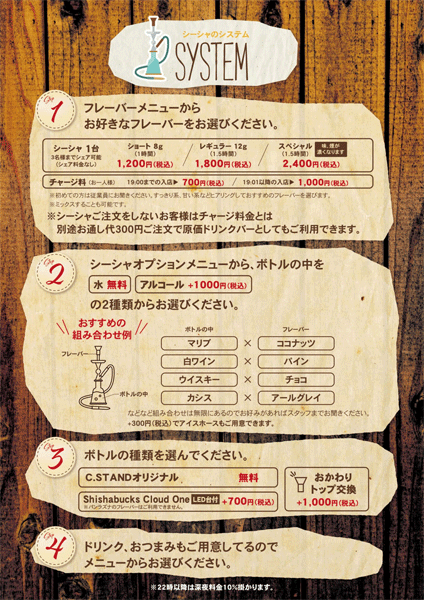 シーシャのシステム
SYSTEM
1
フレーバーメニューから
お好きなフレーバーをお選びください。
シーシャ 1台
3名様までシェア可能
(シェア料金なし)
ショート 8g
(1時間)
1,200円(税込)
レギュラー 12g
(1.5時間)
1,800円(税込)
スペシャル
(1.5時間)
味、煙が
濃くなります
2,400円(税込)
チャージ料(お一人様) 19:00までの入店▶700円(税込) 19:01以降の入店▶1,000円(税込)
※初めての方は従業員にお聞きください。すっきり系、甘い系などヒアリングしておすすめのフレーバーを選びます。
※ミックスすることも可能です。
※シーシャご注文をしないお客様はチャージ料金とは
別途お通し代300円ご注文で原価ドリンクバーとしてもご利用できます。
2
シーシャオプションメニューから、ボトルの中を
水 無料 アルコール +1000円(税込)
の2種類からお選びください。
おすすめの
組み合わせ例
フレーバー
ボトルの中
ボトルの中 フレーバー
マリブ × ココナッツ
白ワイン × パイン
ウイスキー × チョコ
カシス × アールグレイ
などなど組み合わせは無限にあるのでお好みがあればスタッフまでお聞きください。
+300円(税込)でアイスホースもご用意できます。
3
ボトルの種類を選んでください。
C.STANDオリジナル 無料
Shishabucks Cloud One LED台付 +700円(税込)
※パンラズナのフレーバーはご利用できません。
おかわり
トップ交換
+1,000円(税込)
4
ドリンク、おつまみもご用意してるので
メニューからお選びください。
※22時以降は深夜料金10%掛かります。